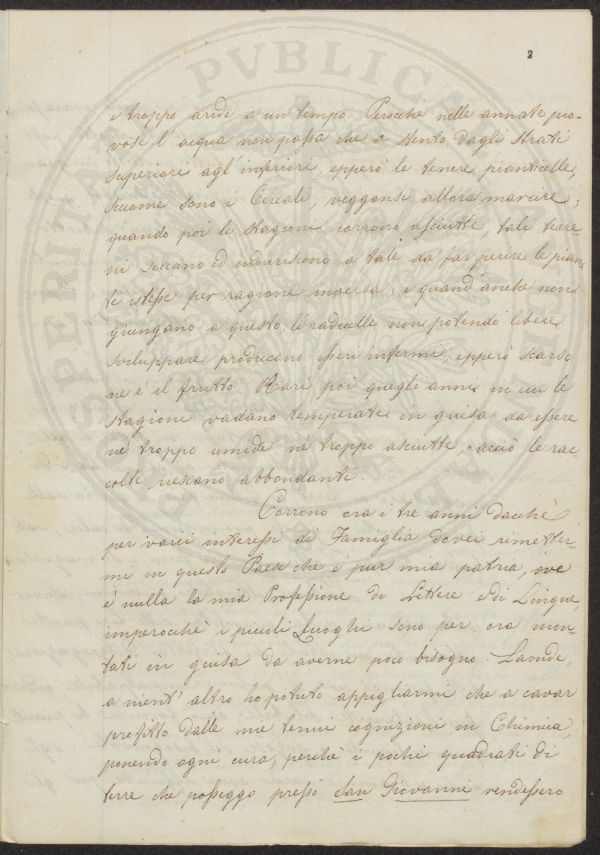 2
e troppo aride a un tempo. Perocchè nelle annate pio-
vose l'acqua non passa che a stento dagli strati
superiori agl'inferiori, epperò le tenere pianticelle,
siccome sono i Cereali, veggonsi allora marcire;
quando poi le stagioni corrono asciutte tali terre-
ni seccano ed induriscono a tale da far perire le pian-
te istesse per ragione inversa: e quand'anche non
giungano a questo, le radicelle non potendo libere
sviluppare producono esseri infermi, epperò scarso
ne è il frutto. Rari poi quegli anni in cui le
stagioni vadano temperate in guisa da essere
nè troppo umide nè troppo asciutte, acciò le rac-
colte riescano abbondanti.
Corrono ora i tre anni dacchè
per varii interessi di Famiglia dovei rimetter-
mi in questo Paese che è pur mia patria, ove
è nulla la mia Professione di Lettere e di Lingue,
imperocchè i piccoli Luoghi sono per ora mon-
tati in guisa da averne poco bisogno. Laonde,
a nient'altro ho potuto appigliarmi che a cavar
profitto dalle mie tenui cognizioni in Chimica,
ponendo ogni cura, perchè i pochi quadrati di
terre che posseggo presso San Giovanni rendessero
PVBLICA